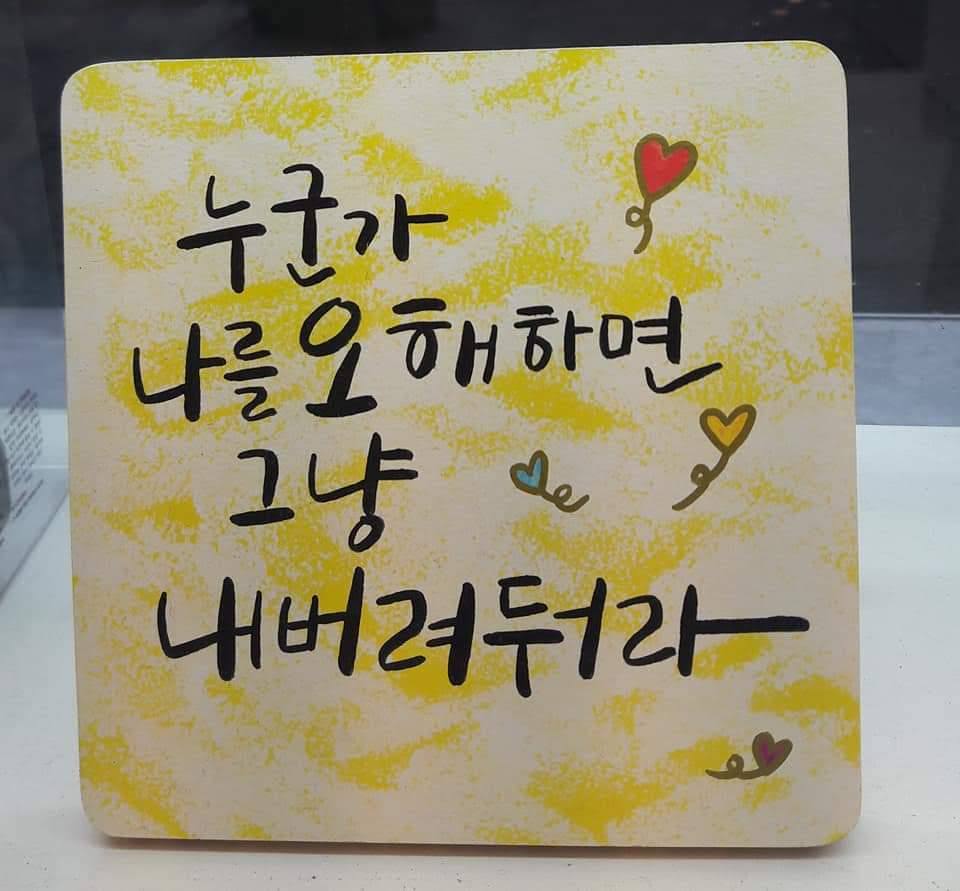 누군가
나를 오해하면
그냥
내버려둬라